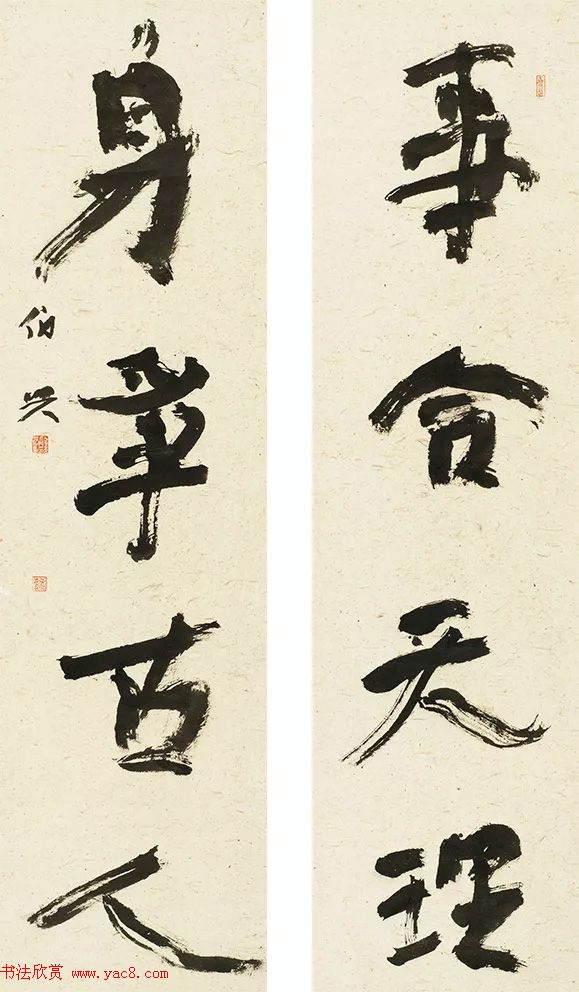 事合天理
身古人
伯兴
书法欣赏 www.yac8.com